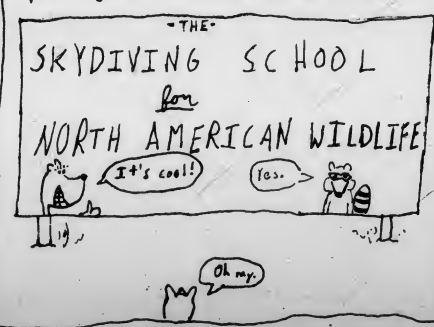 - THE -
SKYDIVING SCHOOL
for
NORTH AMERICAN WILDLIFE
It's cool!
Yes.
Oh my.